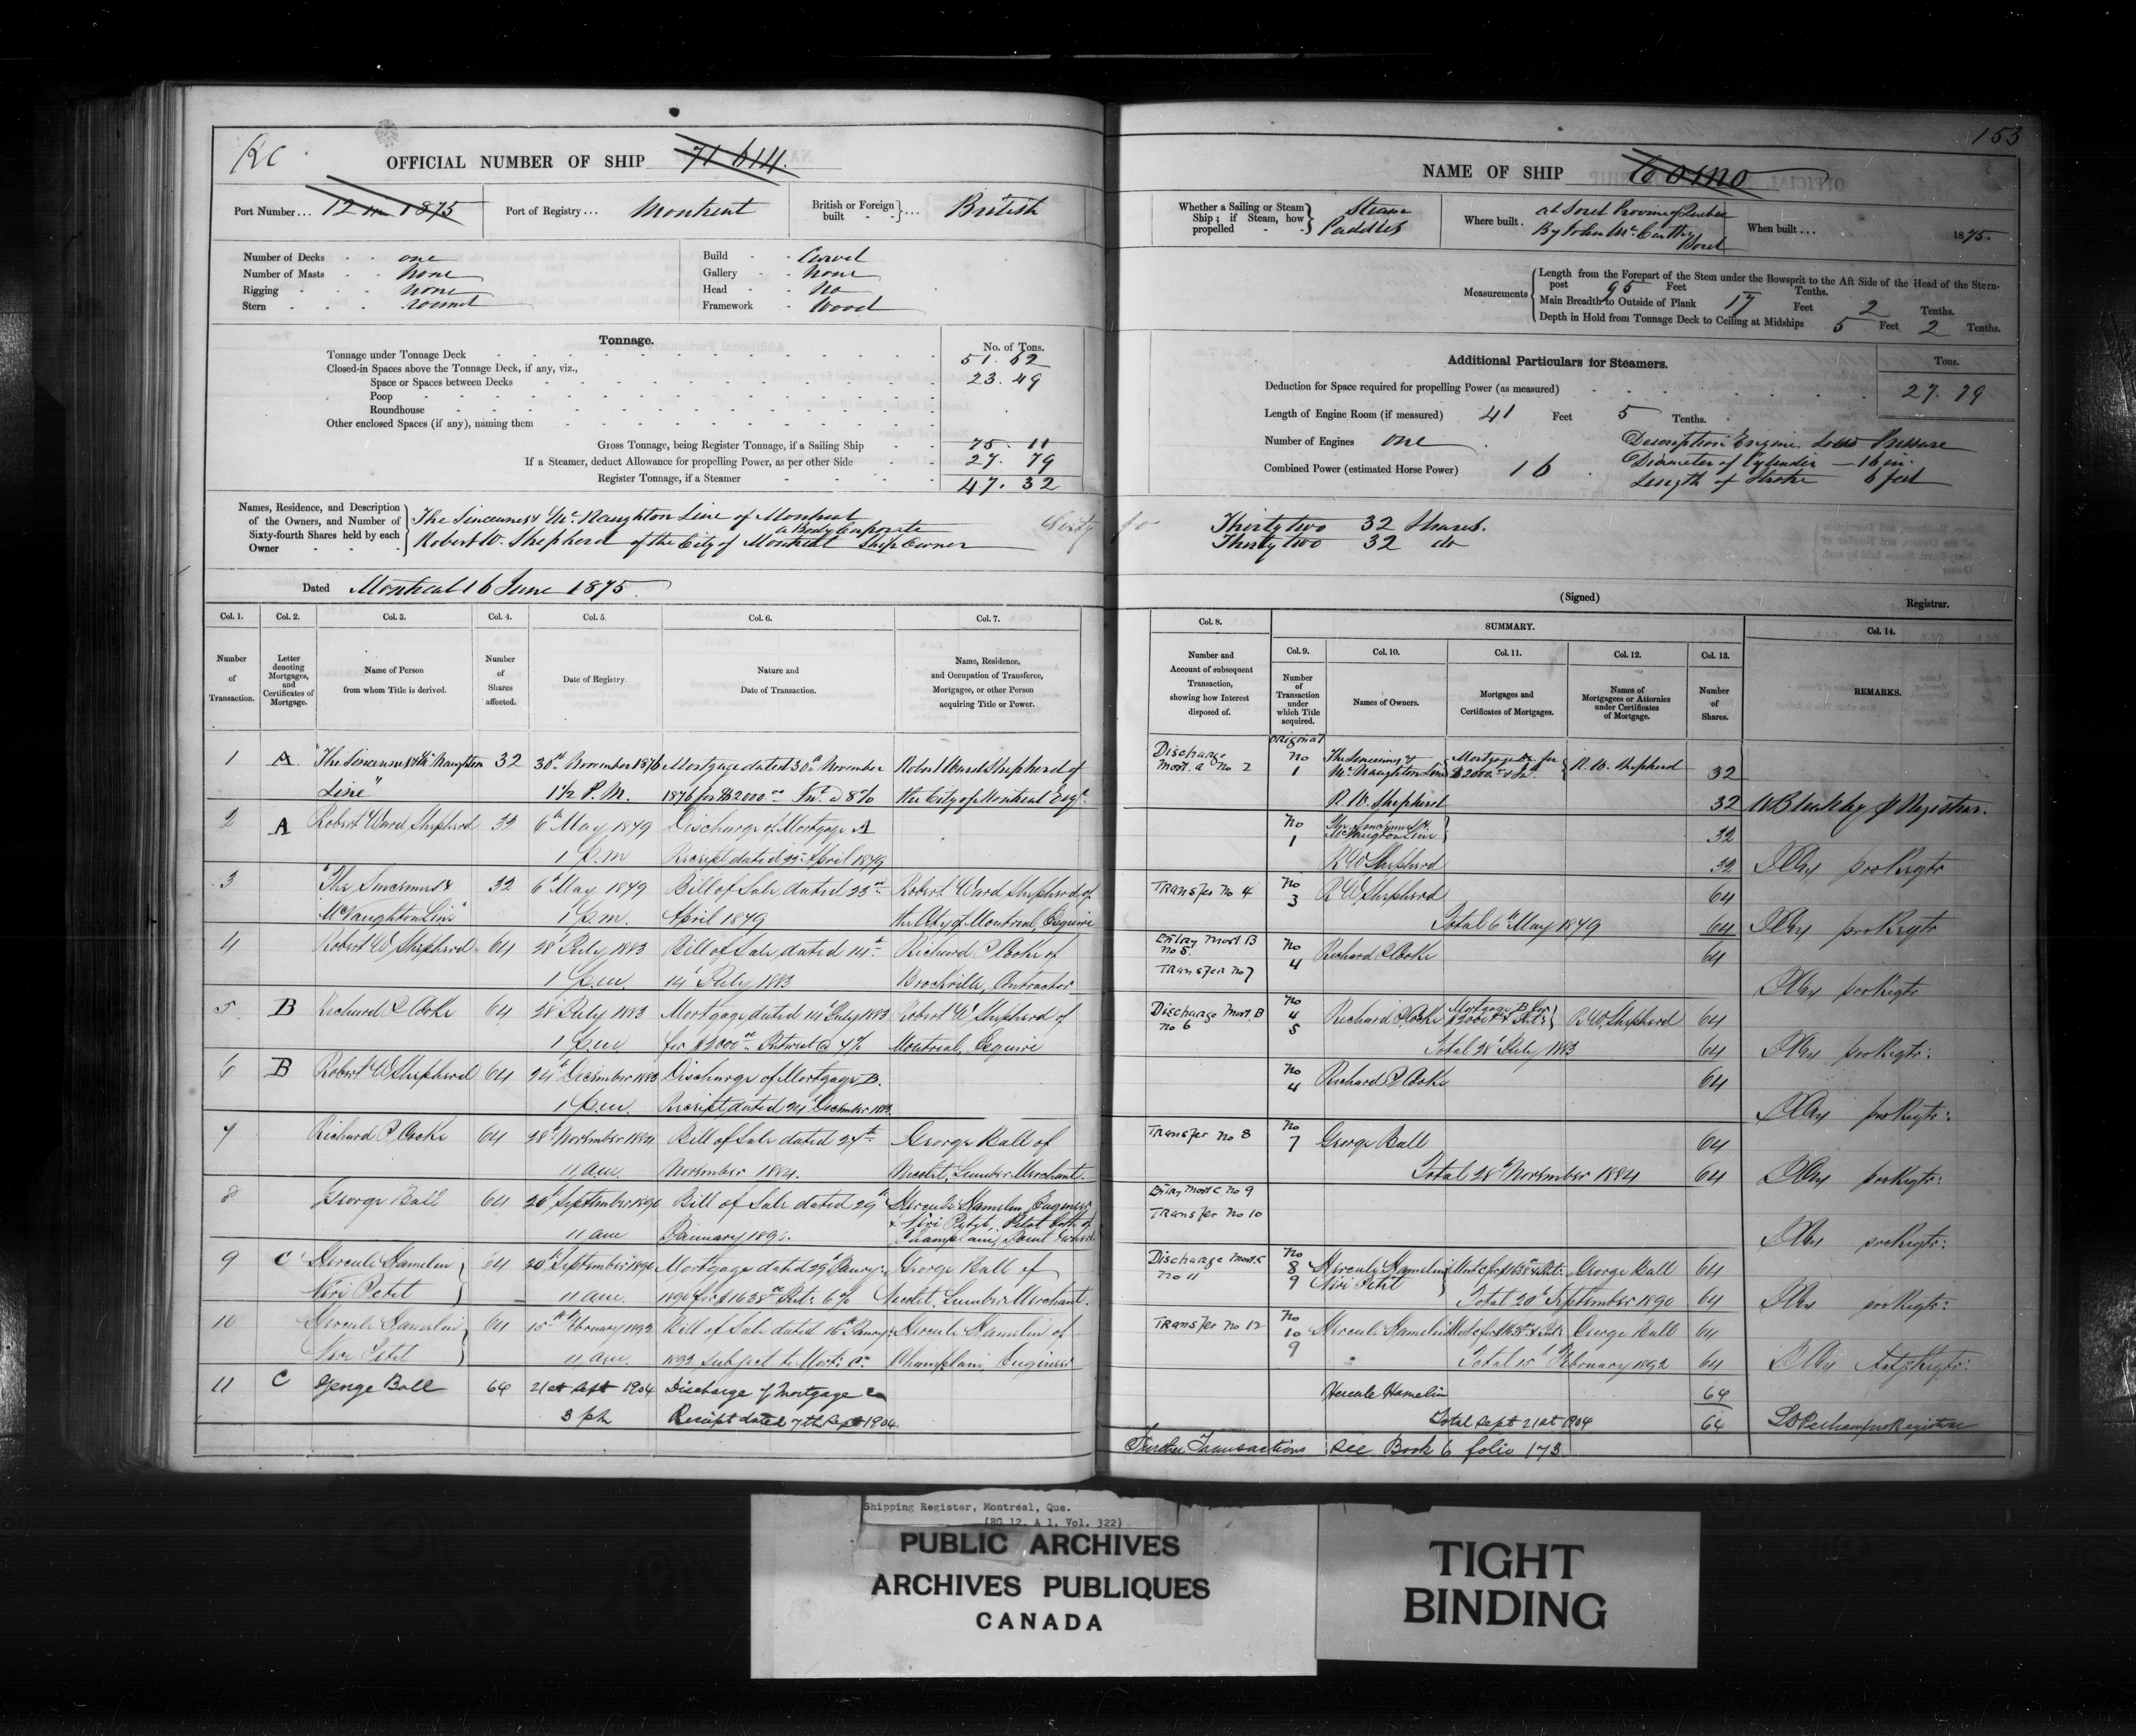 153
RC
OFFICIAL NUMBER OF SHIP 71 614.
NAME OF SHIP
Port Number ... 12 in 1875
Port of Registry ... Montreal
British or Foreign built - - } ... British
Whether a Sailing or Steam Ship; if Steam, how propelled - - } Steam Paddles
Where built . at Sorel Province of Quebec
By John McCarthy Sorel
When built ... 1875.
Number of Decks - - one
Number of Masts - - None
Rigging - - - none
Stern - - - round
Build - - Carvel
Gallery - - None
Head - - No
Framework - Wood
Measurements
Length from the Forepart of the Stem under the Bowsprit to the Aft Side of the Head of the Stern-
post 95 Feet Tenths.
Main Breadth to Outside of Plank 17 Feet 2 Tenths.
Depth in Hold from Tonnage Deck to Ceiling at Midships 5 Feet 2 Tenths.
Tonnage.
No. of Tons.
Tonnage under Tonnage Deck 51. 62
Closed-in Spaces above the Tonnage Deck, if any, viz.,
Space or Spaces between Decks 23. 49
Poop
Roundhouse
Other enclosed Spaces (if any), naming them
Gross Tonnage, being Register Tonnage, if a Sailing Ship 75. 11
If a Steamer, deduct Allowance for propelling Power, as per other Side 27. 79
Register Tonnage, if a Steamer 47. 32
Additional Particulars for Steamers.
Tons.
Deduction for Space required for propelling Power (as measured) 27. 79
Length of Engine Room (if measured) 41 Feet 5 Tenths.
Number of Engines one
Combined Power (estimated Horse Power) 16
Description Engine. Low Pressure
Diameter of Cylinder — 16 in.
Length of Stroke 6 feet
Names, Residence, and Description
of the Owners, and Number of
Sixty-fourth Shares held by each
Owner
The Sincennes & McNaughton Line of Montreal
a Body Corporate
Robert W. Shepherd of the City of Montreal Ship Owner
Thirty two 32 Shares.
Thirty two 32 do
Dated Montreal 16 June 1875
(Signed)
Registrar.
Col. 1. Col. 2. Col. 3. Col. 4. Col. 5. Col. 6. Col. 7.
Number of Transaction.
Letter denoting Mortgages, and Certificates of Mortgage.
Name of Person from whom Title is derived.
Number of Shares affected.
Date of Registry.
Nature and Date of Transaction.
Name, Residence, and Occupation of Transferee, Mortgagee, or other Person acquiring Title or Power.
Col. 8. SUMMARY. Col. 14.
Col. 9. Col. 10. Col. 11. Col. 12. Col. 13.
Number and Account of subsequent Transaction, showing how Interest disposed of.
Number of Transaction under which Title acquired.
Names of Owners.
Mortgages and Certificates of Mortgages.
Names of Mortgagees or Attornies under Certificates of Mortgage.
Number of Shares.
REMARKS.
1 A "The Sincennes & McNaughton 32 30th November 1876 Mortgage dated 30th November Robert Ward Shepherd of
Line" 1½ P.M. 1876 for $2000.00 Int. @ 8% the City of Montreal Esqr.
Discharge Mort. A No 2 original No 1 The Sincennes & McNaughton Line Mortgage A for $2000.00 & Int. R. W. Shepherd 32
R. W. Shepherd 32
2 A Robert Ward Shepherd 32 6th May 1879 Discharge of Mortgage A
1 p.m Receipt dated 23 April 1879
No 1 The Sincennes & McNaughton Line 32
R W Shepherd 32
3 "The Sincennes & 32 6th May 1879 Bill of Sale dated 23rd Robert Ward Shepherd of
McNaughton Line" 1 p.m. April 1879 the City of Montreal, Esquire
Transfer No 4 No 3 R W Shepherd 64
Total 6th May 1879 64
4 Robert W Shepherd 64 28 July 1883 Bill of Sale dated 14th Richard P Cooke of
1 p.m. 14 July 1883 Brockville, Contractor
Entry Mort B No 5. Transfer No 7 No 4 Richard P Cooke 64
5 B Richard P Cooke 64 28 July 1883 Mortgage dated 14 July 1883 Robert W Shepherd of
1 p.m for $2000.00 Interest @ 7% Montreal, Esquire
Discharge Mort. B No 6 No 4 5 Richard P Cooke Mortgage B for $2000 & Int: R W Shepherd 64
Total 28 July 1883 64
6 B Robert W Shepherd 64 24th December 1883 Discharge of Mortgage B.
1 p.m. Receipt dated 24 December 1883.
No 4 Richard P Cooke 64
7 Richard P Cooke 64 28th November 1884 Bill of Sale dated 27th George Ball of
11 am. November 1884. Nicolet, Lumber Merchant.
Transfer No 8 No 7 George Ball 64
Total 28th November 1884 64
8 George Ball 64 20 September 1890 Bill of Sale dated 29th Hercule Hamelin, Engineer
& Néri Petit, Pilot both of
11 am January 1890. Champlain,
Entry Mort C No 9
Transfer No 10
9 C Hercule Hamelin 64 20 September 1890 Mortgage dated 29 Janry: George Ball of
Néri Petit 11 am. 1890 for $1638.00 Int: 6% Nicolet, Lumber Merchant.
Discharge Mort. C No 11 No 8 9 Hercule Hamelin Néri Petit Mort C for $1638 & Int: George Ball 64
Total 20th September 1890 64
10 Hercule Hamelin 64 15th February 1892 Bill of Sale dated 16th Janry: Hercule Hamelin of
Néri Petit 11 am. 1892 subject to Mort: C. Champlain, Engineer
Transfer No 12 No 10 9 Hercule Hamelin Mort C for $1638 & Int: George Ball 64
Total 15th February 1892 64
11 C George Ball 64 21st Sept 1904 Discharge of Mortgage C
3 pm Receipt dated 7th Sept 1904.
Hercule Hamelin 64
Total Sept 21st 1904 64
Further Transactions see Book 6 folio 173
Shipping Register, Montréal, Que.
(RG 12, A 1, Vol. 322)
PUBLIC ARCHIVES
ARCHIVES PUBLIQUES
CANADA
TIGHT
BINDING